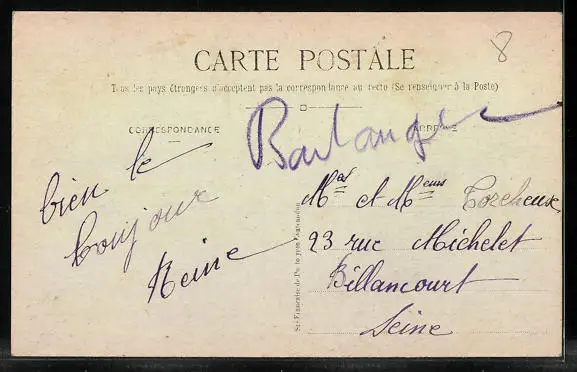 8
CARTE POSTALE
Tous les pays étrangers n'acceptent pas la correspondance au recto (Se renseigner à la Poste)
CORRESPONDANCE
ADRESSE
Boulanger
bien le
bonjour
Reine
et Torcheux
23 rue Michelet
Billancourt
Seine